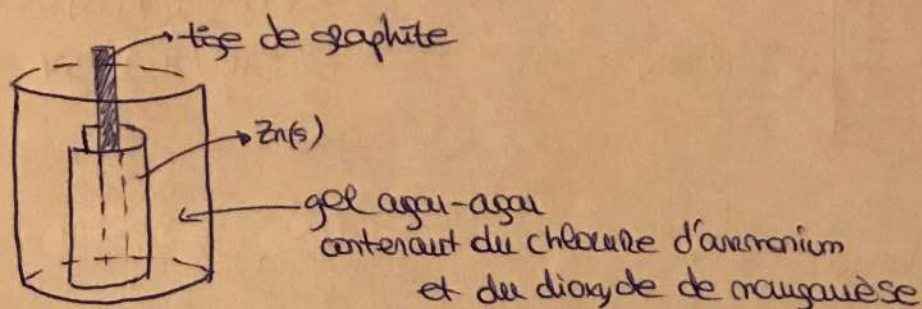 tige de graphite
Zn(s)
gel agar-agar
contenant du chlorure d'ammonium
et du dioxyde de manganèse